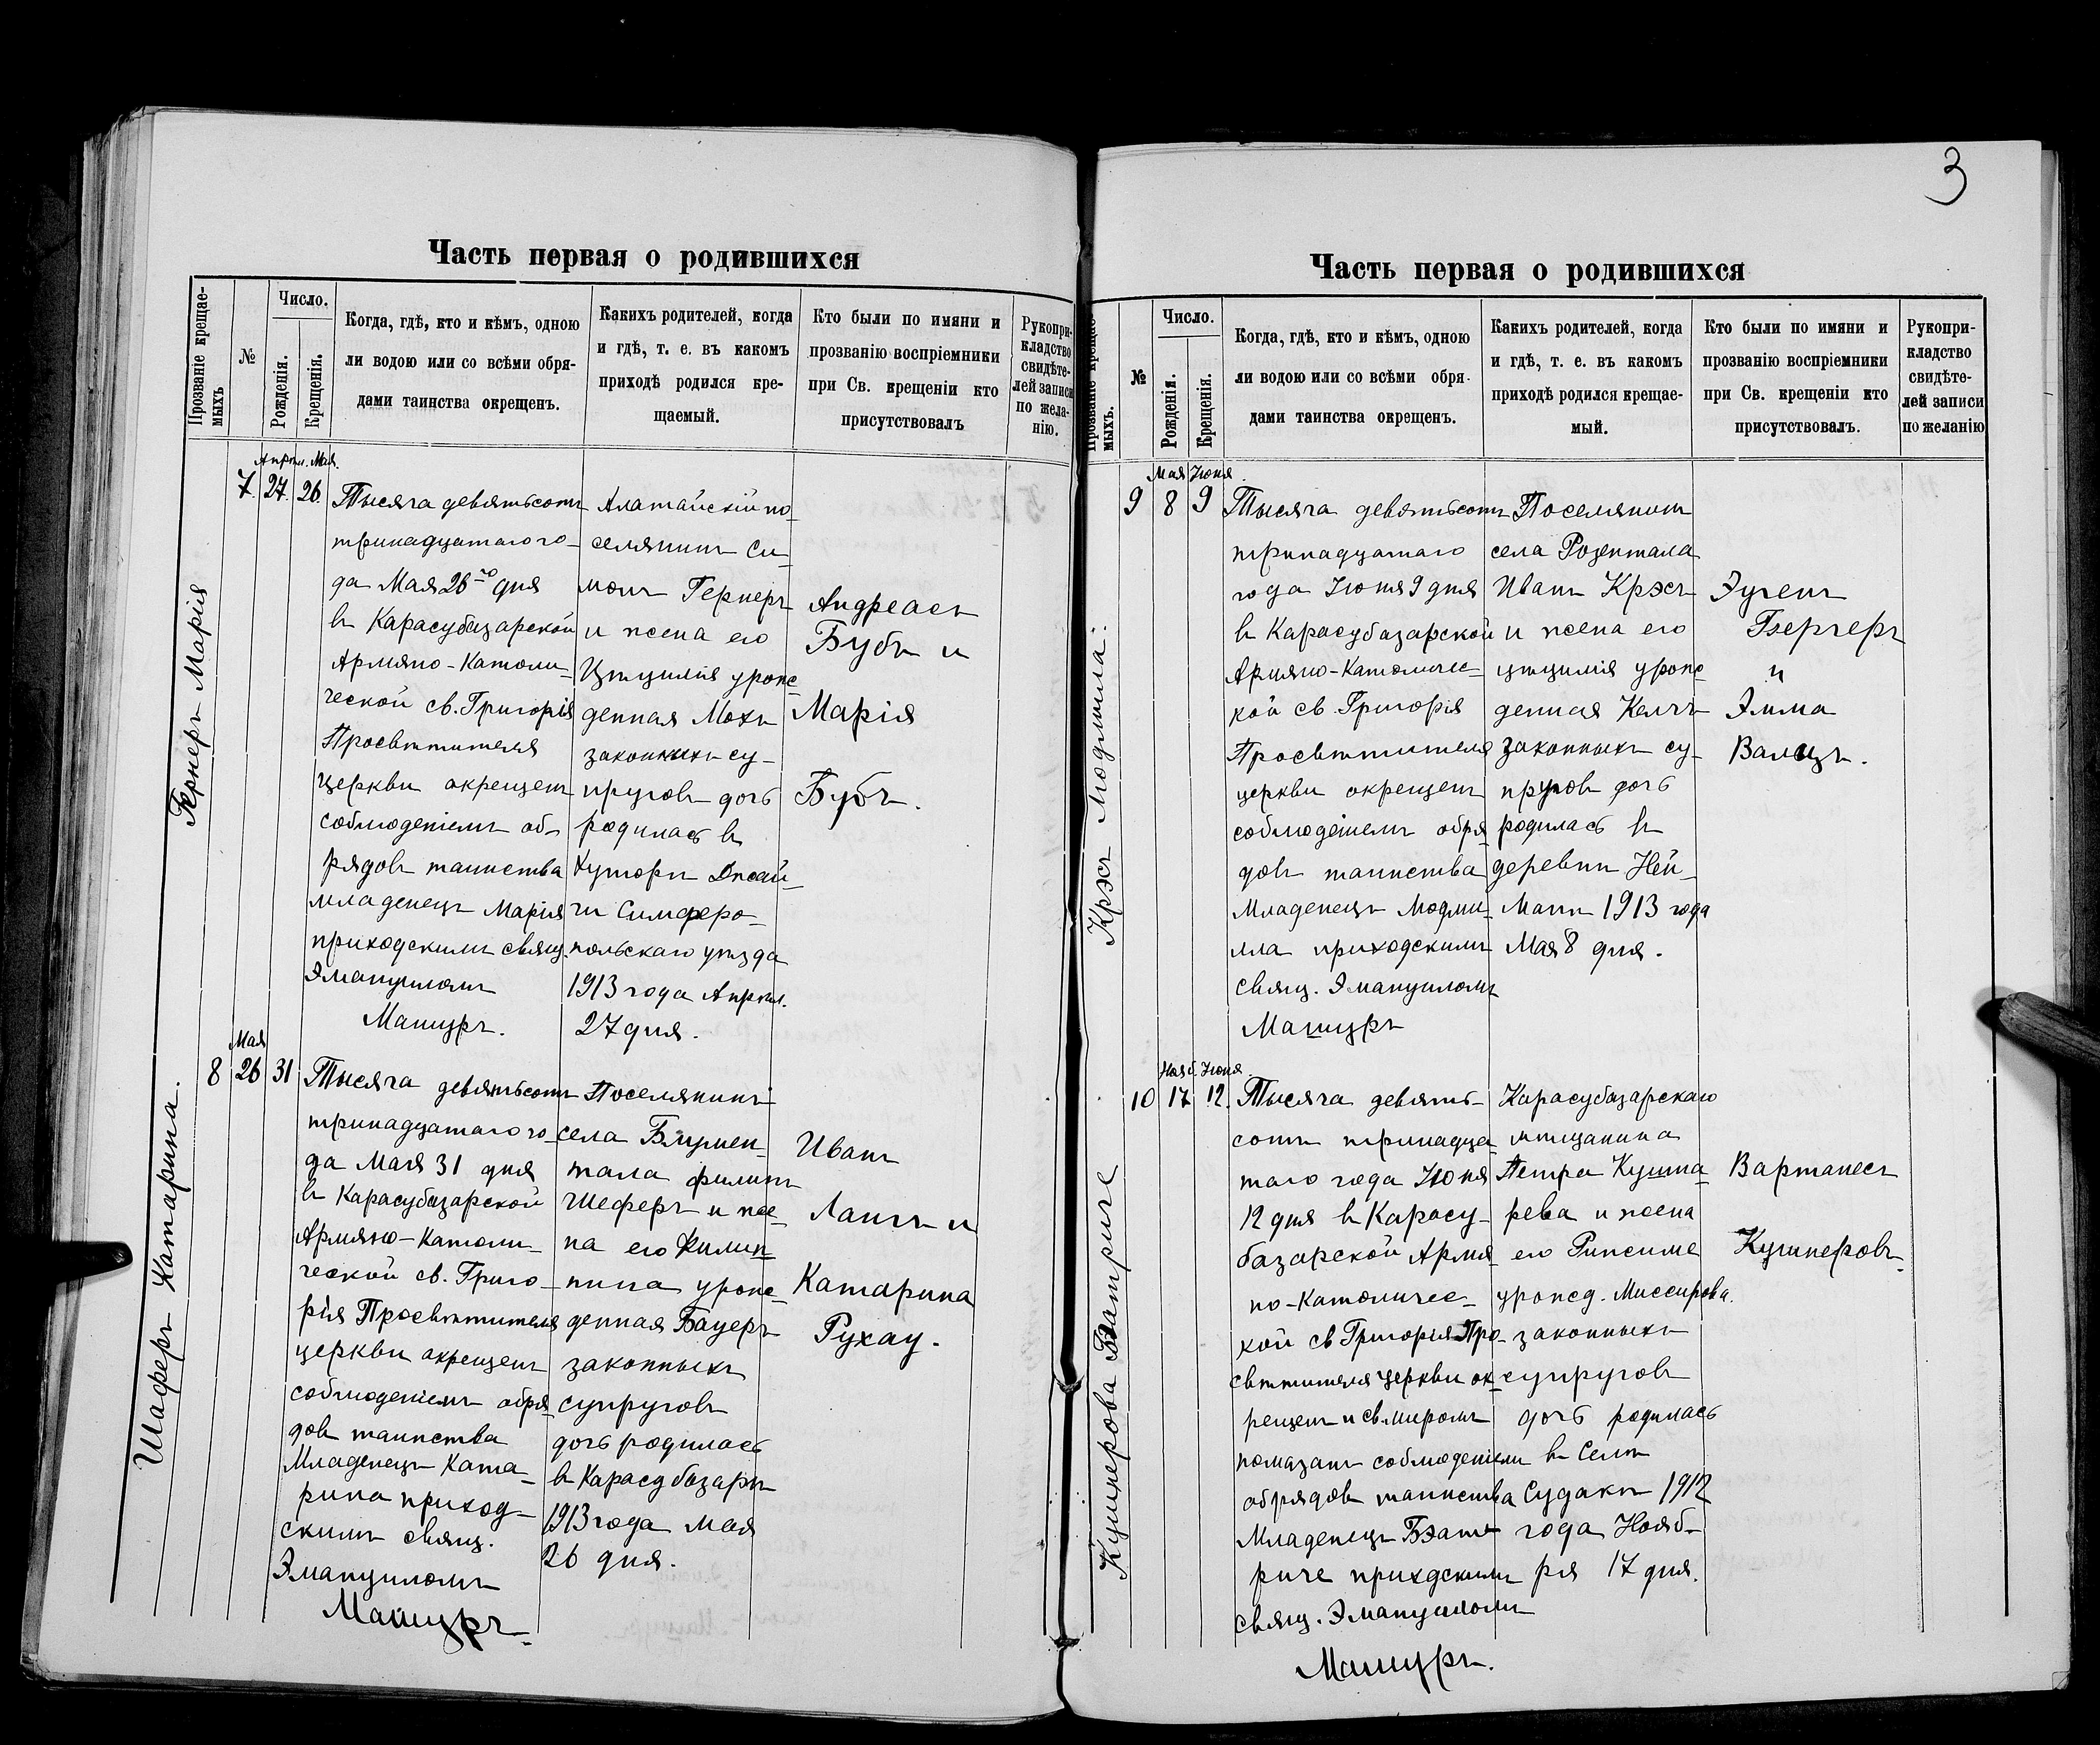 3
Часть первая о родившихся
Прозваніе крещае-
мыхъ
№
Число.
Рожденія.
Крещенія.
Когда, гдѣ, кто и кѣмъ, одною
ли водою или со всѣми обря-
дами таинства окрещенъ.
Какихъ родителей, когда
и гдѣ, т. е. въ какомъ
приходѣ родился кре-
щаемый.
Кто были по имяни и
прозванію воспріемники
при Св. крещеніи кто
присутствовалъ
Рукопри-
кладство
свидѣте-
лей записи
по жела-
нію.
Гернеръ Марія
Апрѣл. Мая.
7. 27. 26.
Тысяча девятьсотъ
тринадцатаго го-
да Мая 26го дня
въ Карасубазарской
Армяно-Католи-
ческой св. Григорія
Просвѣтителя
церкви окрещенъ
соблюденіемъ об-
рядовъ таинства
младенецъ Марія
приходскимъ свящ.
Эмануиломъ
Мацуръ.
Алатайскій по-
селянинъ Си-
монъ Гернеръ
и жена его
Цецилія урож-
денная Мохъ
законныхъ су-
пруговъ дочь
родилась въ
хуторѣ Джай-
чи Симферо-
польскаго уѣзда
1913 года Апрѣл.
27 дня.
Андреасъ
Бубъ и
Марія
Бубъ.
Шаферъ Катарина.
Мая
8 26 31
Тысяча девятьсотъ
тринадцатаго го-
да Мая 31 дня
въ Карасубазарской
Армяно-Католи-
ческой св. Григо-
рія Просвѣтителя
церкви окрещенъ
соблюденіемъ обря-
довъ таинства
Младенецъ Ката-
рина приход-
скимъ свящ.
Эмануиломъ
Мацуръ.
Поселянинъ
села Блумен-
тала Филипъ
Шеферъ и же-
на его Филип-
пина урож-
денная Бауеръ
законныхъ
супруговъ
дочь родилась
въ Карасубазарѣ
1913 года Мая
26 дня.
Иванъ
Лангъ и
Катарина
Рухау.
Часть первая о родившихся
Прозваніе крещае-
мыхъ.
№
Число.
Рожденія.
Крещенія.
Когда, гдѣ, кто и кѣмъ, одною
ли водою или со всѣми обря-
дами таинства окрещенъ.
Какихъ родителей, когда
и гдѣ, т. е. въ какомъ
приходѣ родился крещае-
мый.
Кто были по имяни и
прозванію воспріемники
при Св. крещеніи кто
присутствовалъ.
Рукопри-
кладство
свидѣте-
лей записи
по желанію
Крэсъ
Мая Іюня.
9 8 9
Тысяча девятьсотъ
тринадцатаго
года Іюня 9 дня
въ Карасубазарской
Армяно-Католичес-
кой св. Григорія
Просвѣтителя
церкви окрещенъ
соблюденіемъ обря-
довъ таинства
Младенецъ Модми-
лла приходскимъ
свящ. Эмануиломъ
Мацуръ
Поселянинъ
села Розентала
Иванъ Крэсъ
и жена его
Цецилія урож-
денная Келчъ
законныхъ су-
пруговъ дочь
родилась въ
деревнѣ Ней-
Манъ 1913 года
Мая 8 дня.
Эугенъ
Бергеръ
и
Эмма
Валцъ.
Кушнерова Беатриче
Нояб. Іюня.
10 17 12.
Тысяча девять-
сотъ тринадца-
таго года Іюня
12 дня въ Карасу-
базарской Армя-
но-Католичес-
кой св Григорія Про-
свѣтителя церкви ок-
рещенъ и св. мѵромъ
помазанъ соблюденіемъ
обрядовъ таинства
Младенецъ Бэат-
риче приходскимъ
свящ. Эмануиломъ
Мацуръ.
Карасубазарскаго
мѣщанина
Петра Кушна-
рева и жена
его Рипсиме
урожд. Миссирова.
законныхъ
супруговъ
дочь родилась
въ Селѣ
Судакъ 1912
года Нояб-
ря 17 дня.
Вартанесъ
Кушнеровъ.